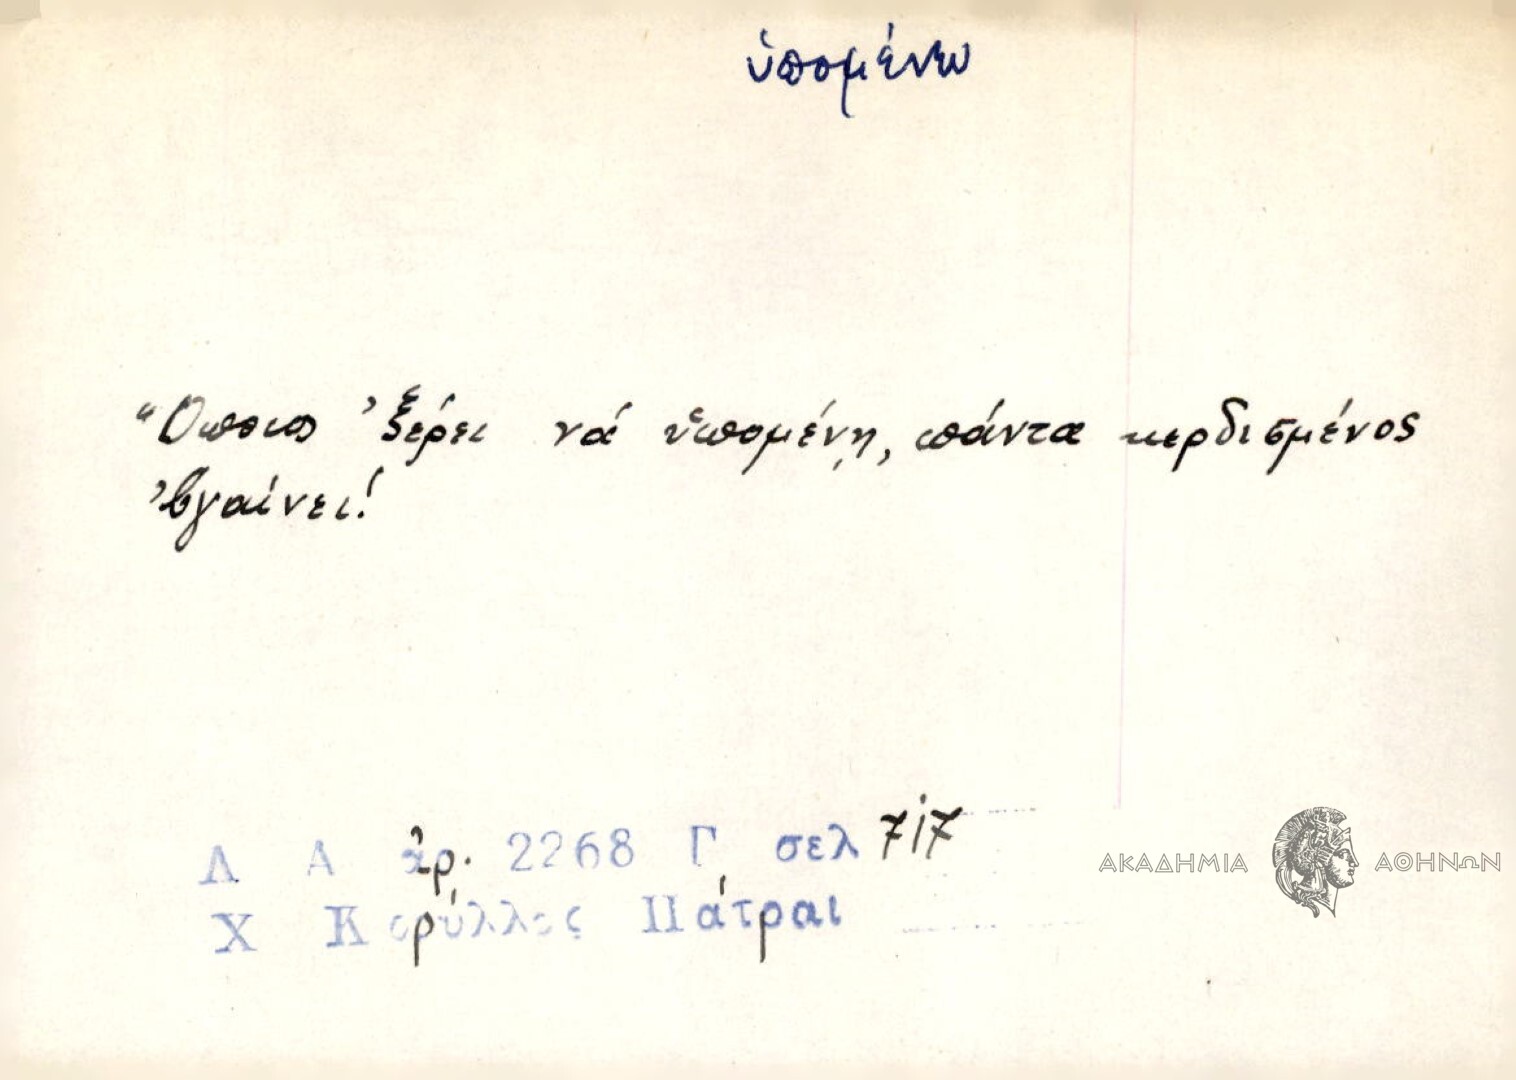 ὑπομένω
Ὅποιος 'ξέρει νά ὑπομένῃ, πάντα κερδισμένος
'βγαίνει!
Λ Α ἀρ. 2268 Γ σελ 717
Χ Κορύλλος Πάτραι
ΑΚΑΔΗΜΙΑ ΑΘΗΝΩΝ